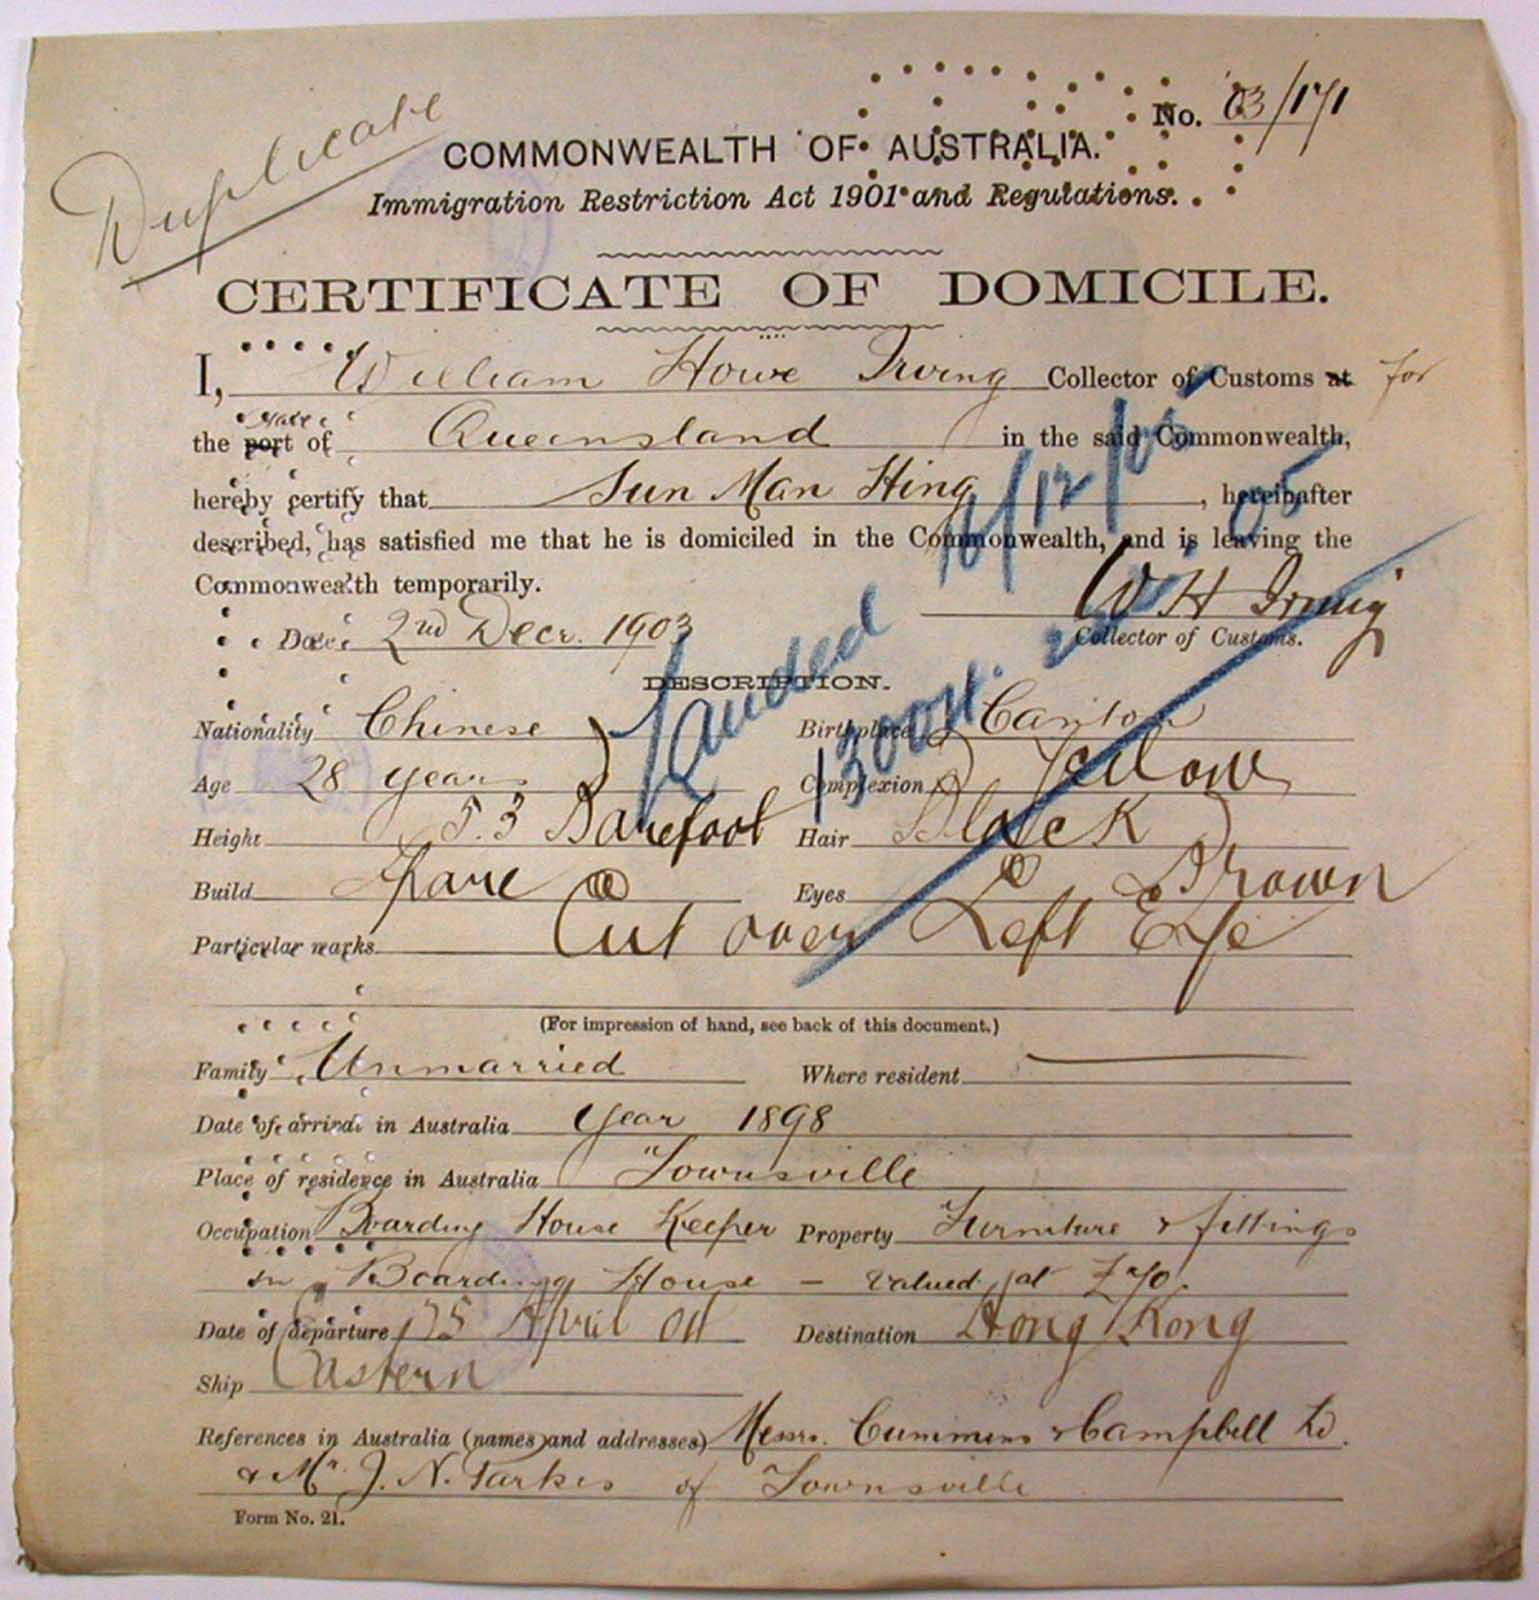 Duplicate
No. 03/171
COMMONWEALTH OF AUSTRALIA.
Immigration Restriction Act 1901 and Regulations.
CERTIFICATE OF DOMICILE.
I, William Howe Irving Collector of Customs at for
the port State of Queensland in the said Commonwealth,
hereby certify that Sun Man Hing, hereinafter
described, has satisfied me that he is domiciled in the Commonwealth, and is leaving the
Commonwealth temporarily.
W H Irving
Date 2nd Decr. 1903 Collector of Customs.
Landed 16/12/05
DESCRIPTION.
Nationality Chinese Birthplace Canton
Age 28 years Complexion Yellow
Height 5.3 Barefoot Hair Black
Build Spare Eyes Brown
Particular marks Cut over Left Eye
(For impression of hand, see back of this document.)
Family Unmarried Where resident
Date of arrival in Australia Year 1898
Place of residence in Australia Townsville
Occupation Boarding House Keeper Property Furniture & fittings
in Boarding House - valued at £70.
Date of departure 25 April 04 Destination Hong Kong
Ship Eastern
References in Australia (names and addresses) Messrs. Cummins & Campbell Ld.
& Mr. J. N. Parkes of Townsville
Form No. 21.